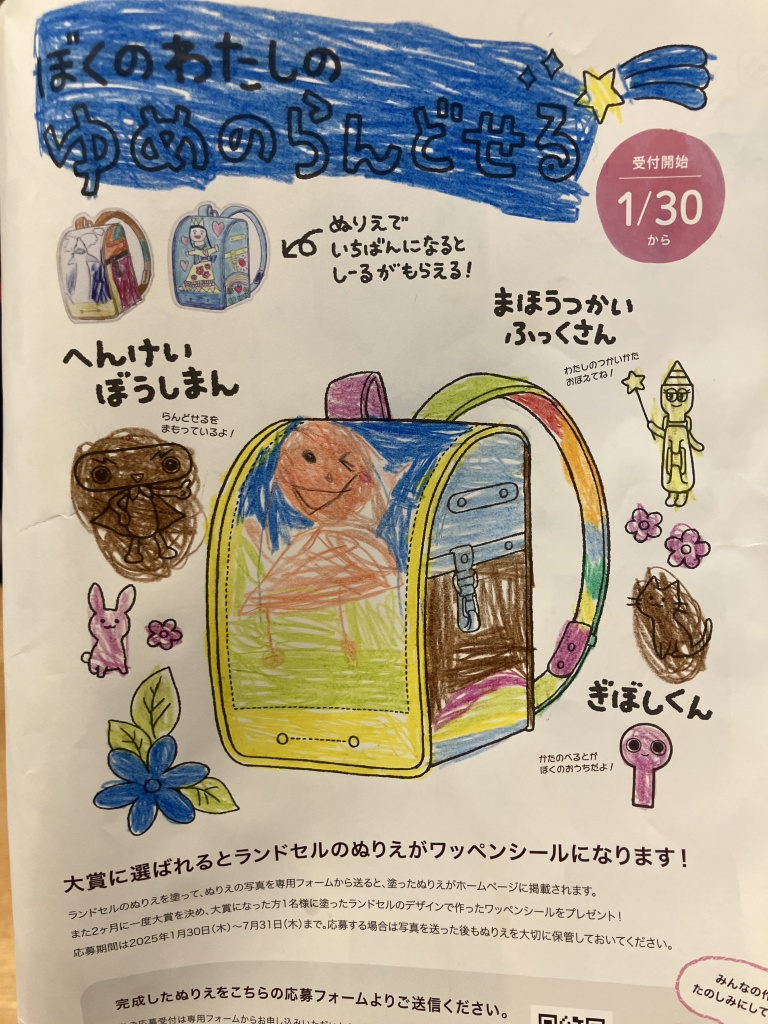 ぼくのわたしの
ゆめのらんどせる
受付開始
1/30
から
ぬりえで
いちばんになると
しーるがもらえる!
まほうつかい
ふっくさん
わたしのつかいかた
おぼえてね!
へんけい
ぼうしまん
らんどせるを
まもっているよ!
ぎぼしくん
かたのべるとが
ぼくのおうちだよ!
大賞に選ばれるとランドセルのぬりえがワッペンシールになります!
ランドセルのぬりえを塗って、ぬりえの写真を専用フォームから送ると、塗ったぬりえがホームページに掲載されます。
また2ヶ月に一度大賞を決め、大賞になった方1名様に塗ったランドセルのデザインで作ったワッペンシールをプレゼント!
応募期間は2025年1月30日(木)〜7月31日(木)まで。応募する場合は写真を送った後もぬりえを大切に保管しておいてください。
みんなの作
たのしみにして
完成したぬりえをこちらの応募フォームよりご送信ください。